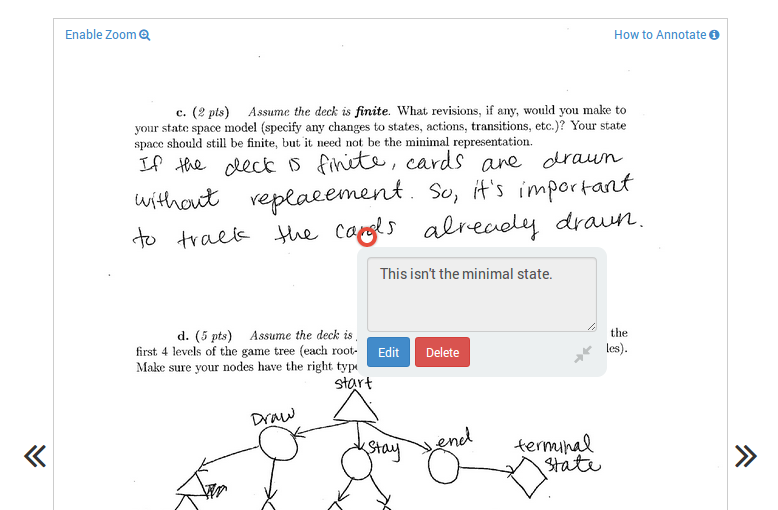 Enable Zoom
How to Annotate
c. (2 pts) Assume the deck is finite. What revisions, if any, would you make to
your state space model (specify any changes to states, actions, transitions, etc.)? Your state
space should still be finite, but it need not be the minimal representation.
If the deck is finite, cards are drawn
without replacement. So, it's important
to track the cards already drawn.
This isn't the minimal state.
Edit Delete
d. (5 pts) Assume the deck is the
first 4 levels of the game tree (each root- les).
Make sure your nodes have the right type
start
Draw
Stay
end
terminal
state